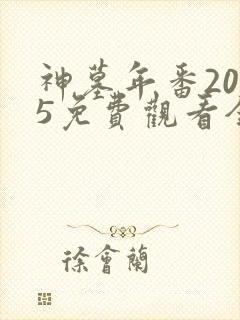 神墓年番20
5免費觀看全
徐會蘭